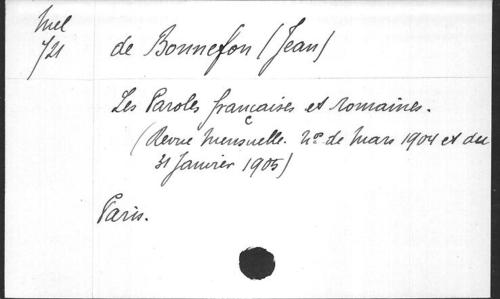 Mel
721
de Bonnefon (Jean)
Les Paroles françaises et romaines.
(Revue mensuelle. Nº de Mars 1904 et du
31 Janvier 1905)
Paris.